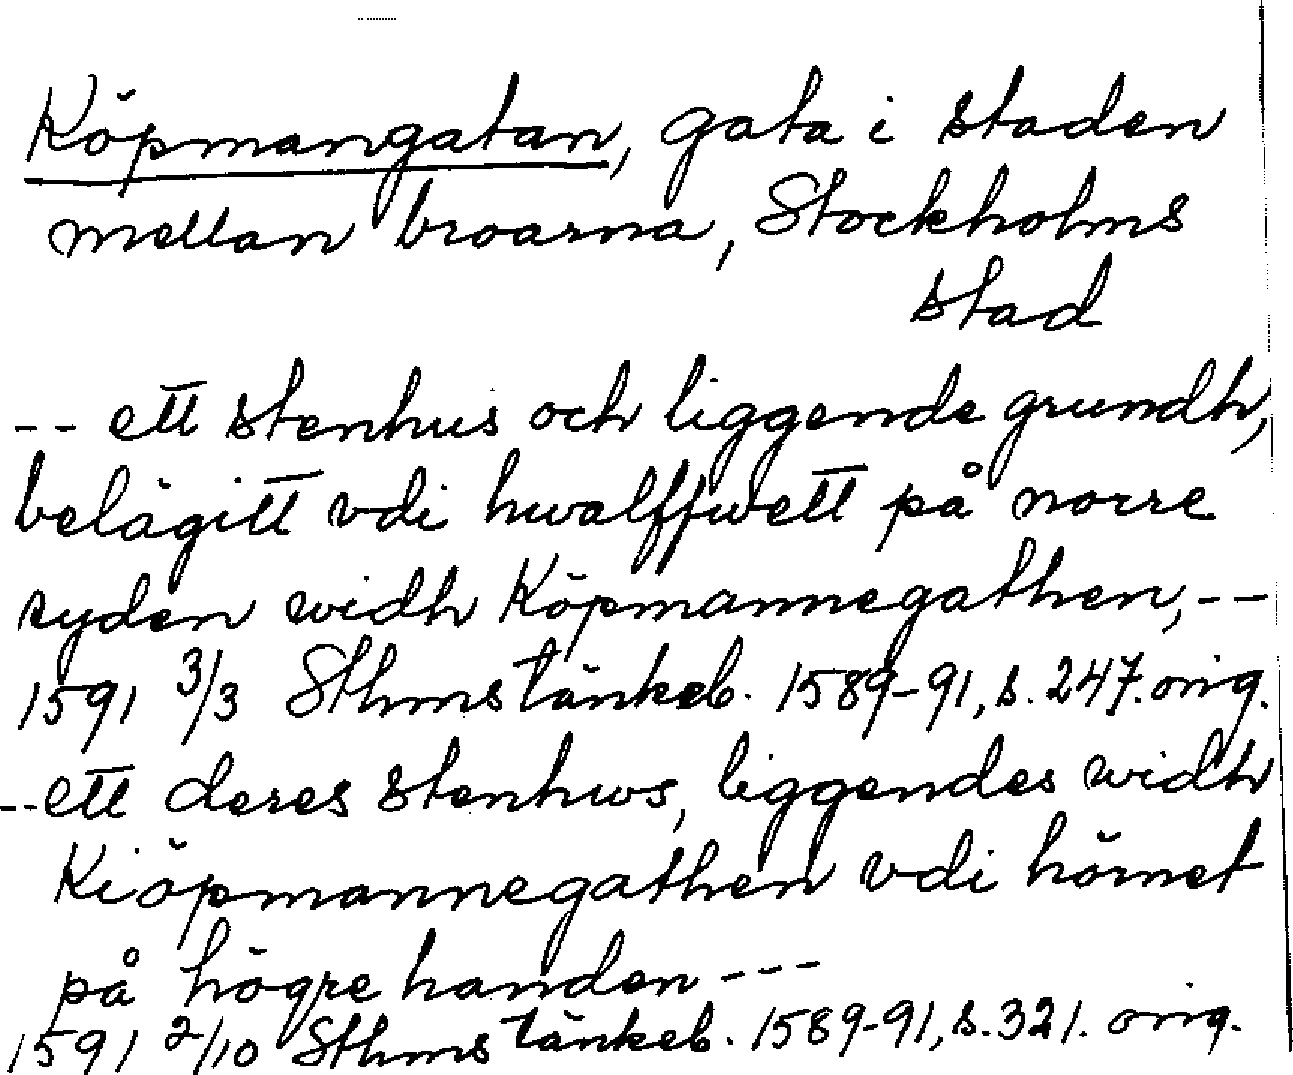 Köpmangatan, gata i staden
mellan broarna, Stockholms
stad
-- ett stenhus och liggende grundh,
belägitt vdi hwalffwett på norre
syden widh Köpmannegathen, --
1591 3/3 Sthms tänkeb. 1589-91, s. 247. orig.
-- ett deres stenhws, liggendes widh
Kiöpmannegathen vdi hörnet
på högre handen ---
1591 2/10 Sthms tänkeb. 1589-91, s. 321. orig.